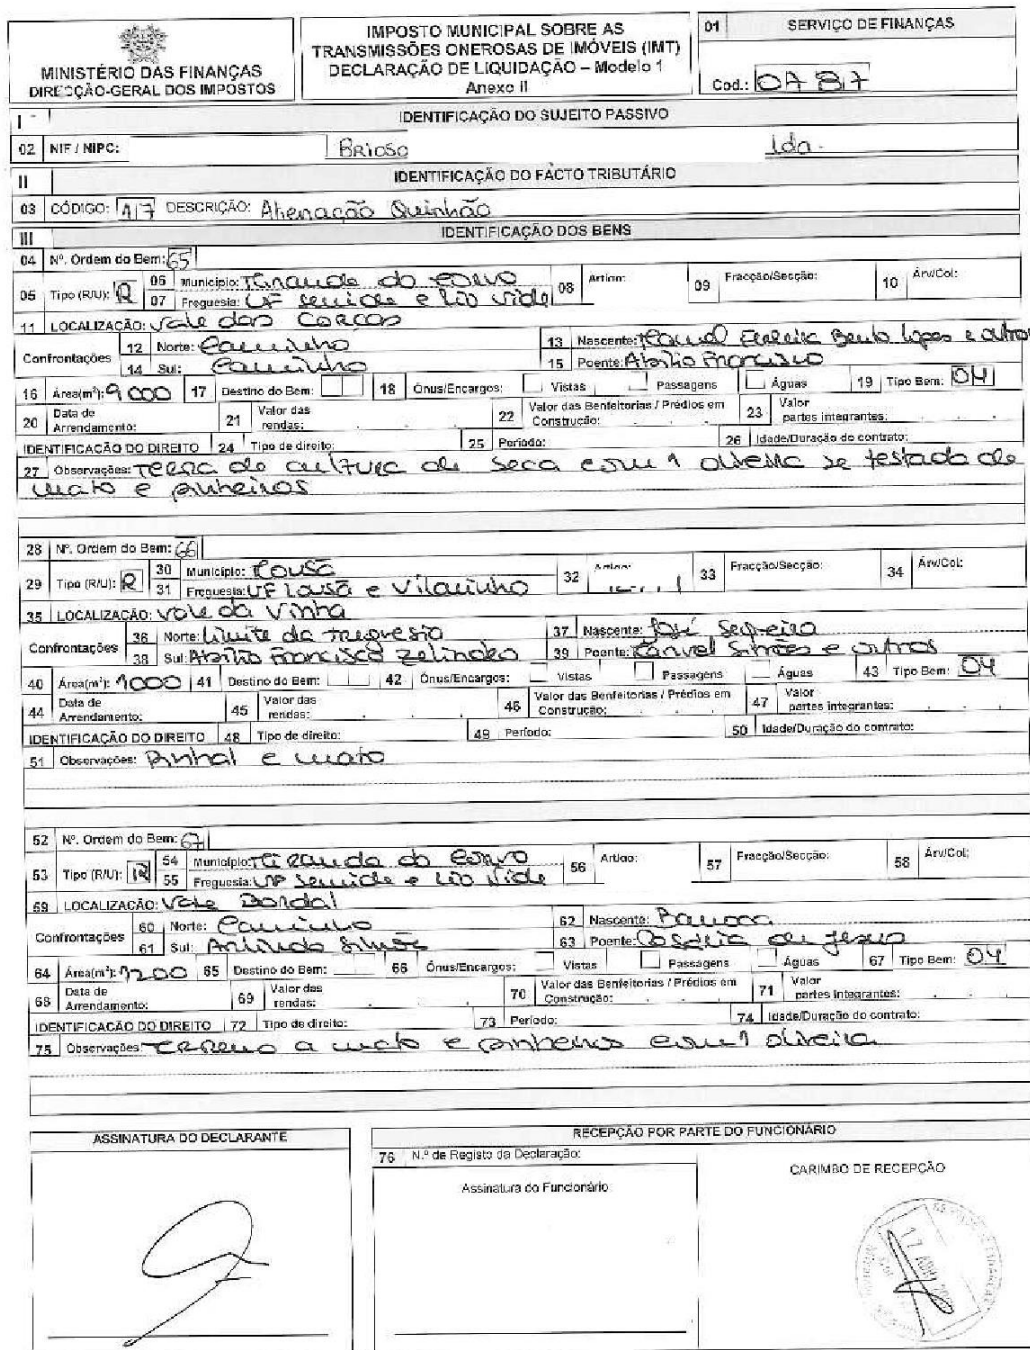 MINISTÉRIO DAS FINANÇAS
DIRECÇÃO-GERAL DOS IMPOSTOS
IMPOSTO MUNICIPAL SOBRE AS
TRANSMISSÕES ONEROSAS DE IMÓVEIS (IMT)
DECLARAÇÃO DE LIQUIDAÇÃO – Modelo 1
Anexo II
01 SERVIÇO DE FINANÇAS
Cod.: 0787
I IDENTIFICAÇÃO DO SUJEITO PASSIVO
02 NIF / NIPC: Brioso Lda.
II IDENTIFICAÇÃO DO FACTO TRIBUTÁRIO
03 CÓDIGO: 17 DESCRIÇÃO: Alienação Quinhão
III IDENTIFICAÇÃO DOS BENS
04 Nº. Ordem do Bem: 65
05 Tipo (R/U): R 06 Município: Miranda do Corvo 08 Artigo: 09 Fracção/Secção: 10 Árv/Col:
07 Freguesia: UF Semide e Rio Vide
11 LOCALIZAÇÃO: Vale das Corças
Confrontações 12 Norte: Caminho 13 Nascente: Manuel Ferreira Bento Lopes e outro
14 Sul: Caminho 15 Poente: Abílio Francisco
16 Área(m²): 9000 17 Destino do Bem: 18 Ónus/Encargos: Vistas Passagens Águas 19 Tipo Bem: 04
20 Data de Arrendamento: 21 Valor das rendas: 22 Valor das Benfeitorias / Prédios em Construção: 23 Valor partes integrantes:
IDENTIFICAÇÃO DO DIREITO 24 Tipo de direito: 25 Período: 26 Idade/Duração do contrato:
27 Observações: Terra de cultura de seca com 1 oliveira se testada de
mato e pinheiros
28 Nº. Ordem do Bem: 66
29 Tipo (R/U): R 30 Município: Lousã 32 33 Fracção/Secção: 34 Árv/Col:
31 Freguesia: UF Lousã e Vilarinho
35 LOCALIZAÇÃO: Vale da Vinha
Confrontações 36 Norte: Limite da freguesia 37 Nascente: José Sequeira
38 Sul: Abílio Francisco Zelindro 39 Poente: Manuel Simões e outros
40 Área(m²): 1000 41 Destino do Bem: 42 Ónus/Encargos: Vistas Passagens Águas 43 Tipo Bem: 04
44 Data de Arrendamento: 45 Valor das rendas: 46 Valor das Benfeitorias / Prédios em Construção: 47 Valor partes integrantes:
IDENTIFICAÇÃO DO DIREITO 48 Tipo de direito: 49 Período: 50 Idade/Duração do contrato:
51 Observações: Pinhal e mato
52 Nº. Ordem do Bem: 67
53 Tipo (R/U): R 54 Município: Miranda do Corvo 56 Artigo: 57 Fracção/Secção: 58 Árv/Col:
55 Freguesia: UF Semide e Rio Vide
59 LOCALIZAÇÃO: Vale Dordal
Confrontações 60 Norte: Caminho 62 Nascente: Barroca
61 Sul: Arlindo Simões 63 Poente: Rosária de Jesus
64 Área(m²): 1200 65 Destino do Bem: 66 Ónus/Encargos: Vistas Passagens Águas 67 Tipo Bem: 04
68 Data de Arrendamento: 69 Valor das rendas: 70 Valor das Benfeitorias / Prédios em Construção: 71 Valor partes integrantes:
IDENTIFICAÇÃO DO DIREITO 72 Tipo de direito: 73 Período: 74 Idade/Duração do contrato:
75 Observações: Terreno a mato e pinheiros com 1 oliveira
ASSINATURA DO DECLARANTE
RECEPÇÃO POR PARTE DO FUNCIONÁRIO
76 N.º de Registo da Declaração:
Assinatura do Funcionário
CARIMBO DE RECEPÇÃO